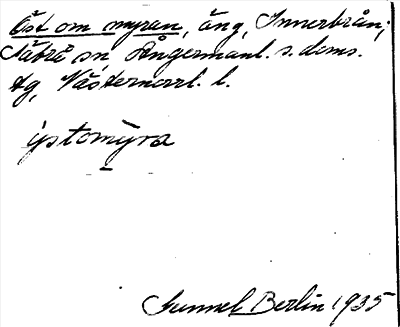 Öst om myran, äng, Innerbrån;
Säbrå sn Ångermanl. s. doms.
tg, Västernorrl. l.
ystomyra
Gunnel Berlin 1935